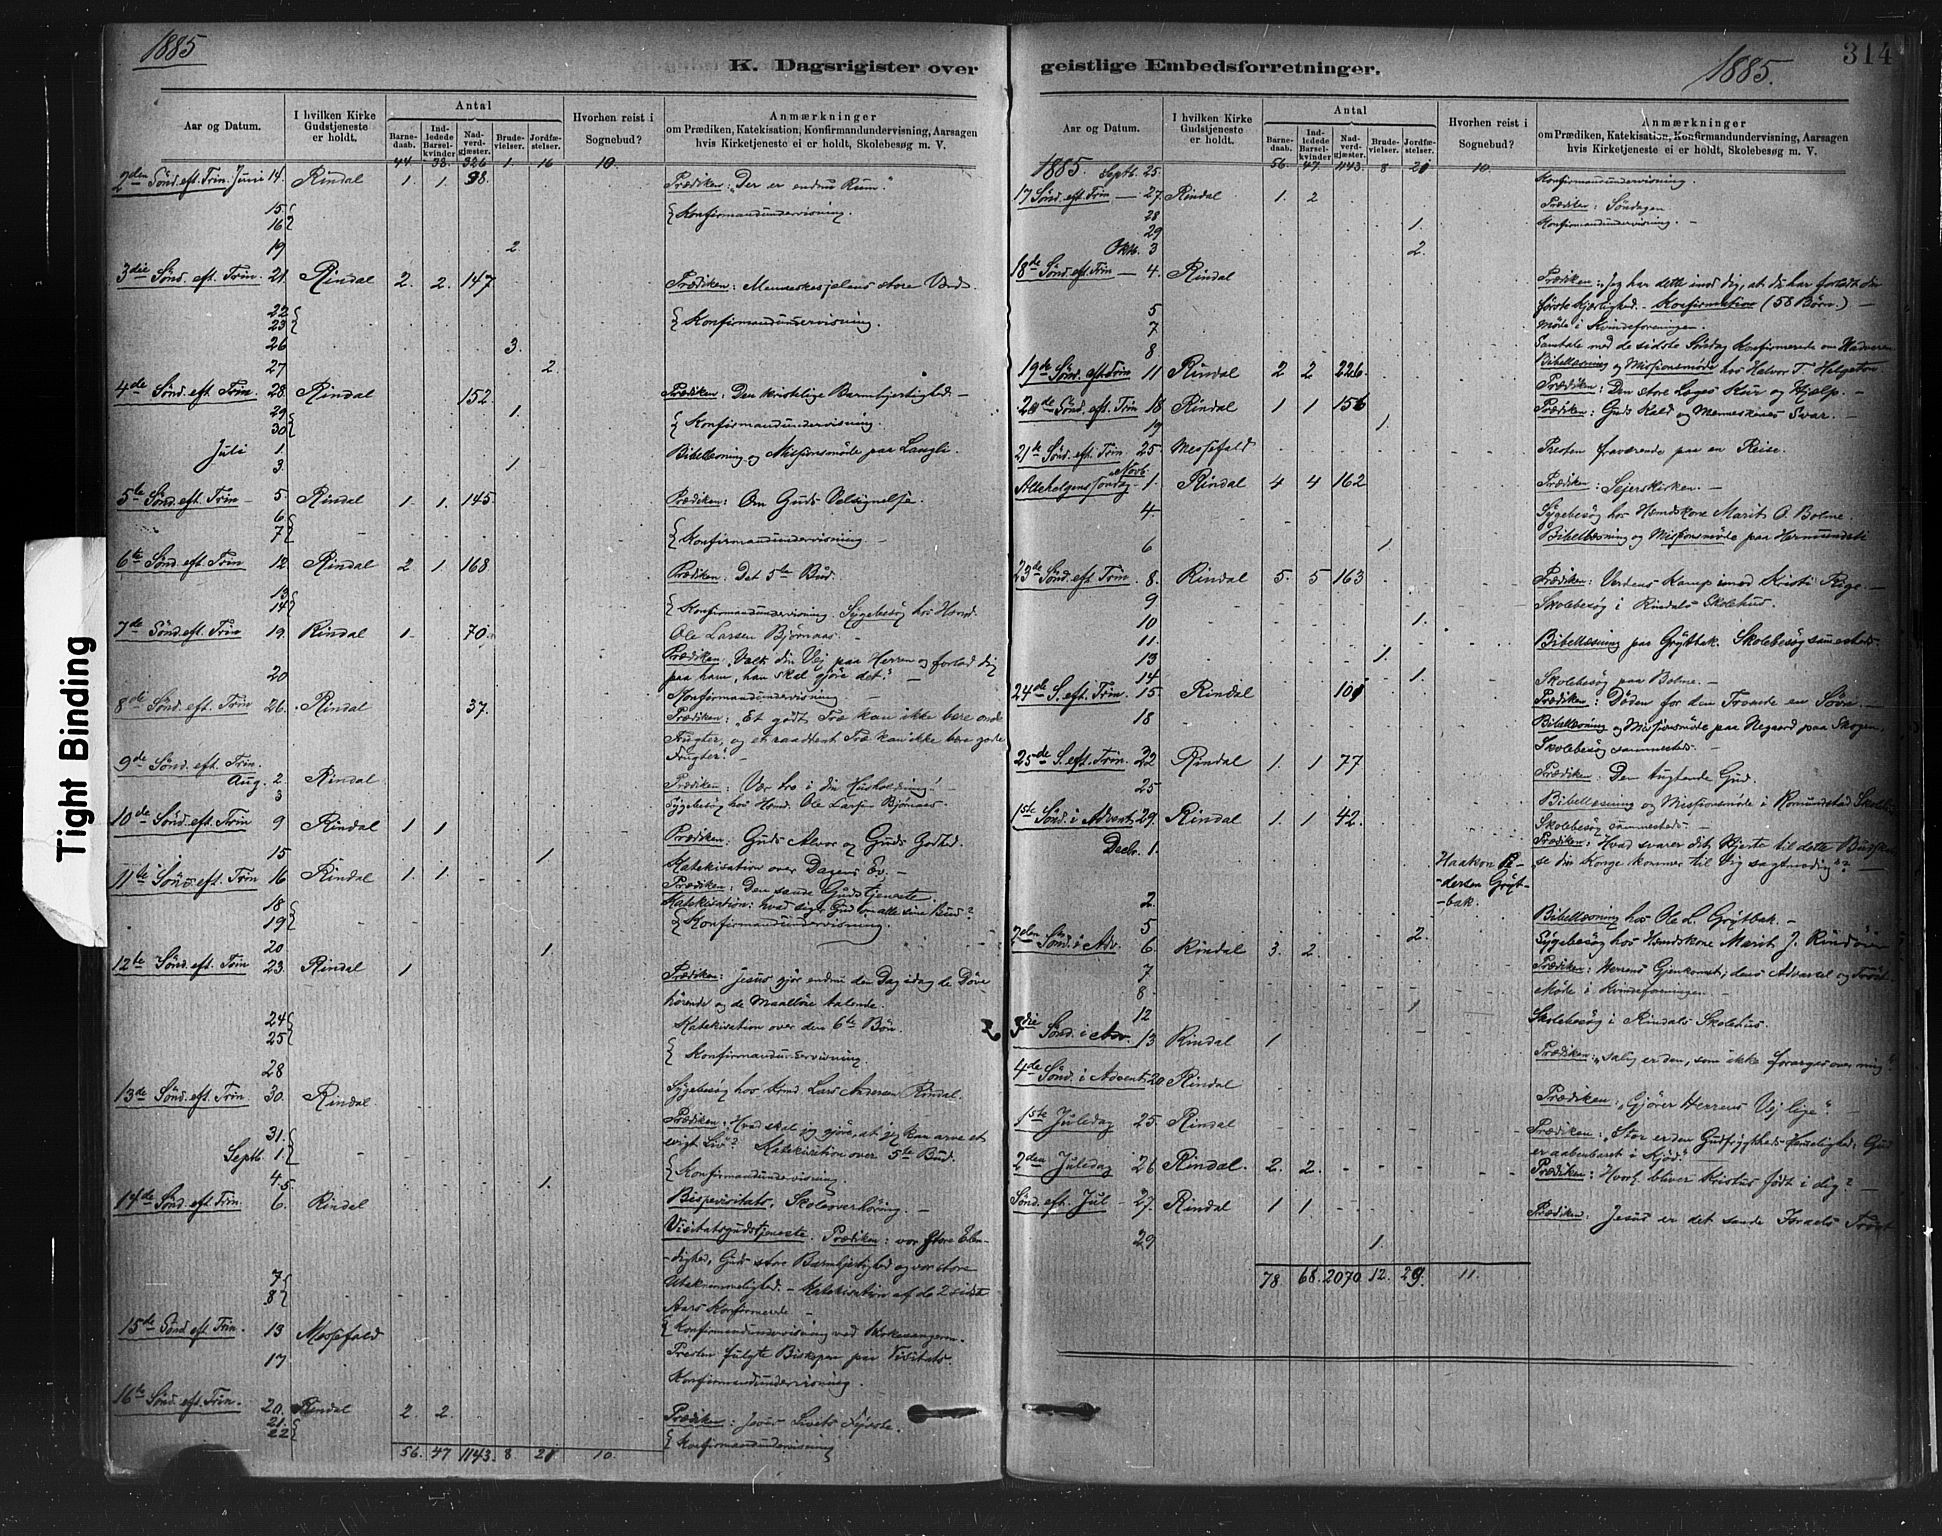 1885
K. Dagsrigister over
Aar og Datum.
I hvilken Kirke Gudstjeneste er holdt.
Antal
Barne-daab.
Ind-ledede Barsel-kvinder
Nad-verd-gjæster.
Brude-vielser.
Jordfæ-stelser.
Hvorhen reist i Sognebud?
Anmærkninger
om Prædiken, Katekisation, Konfirmandundervisning, Aarsagen
hvis Kirketjeneste ei er holdt, Skolebesøg m. V.
44. 38. 326 1. 16 10.
2den Sønd. eft. Trin. Juni 14. Rindal 1. 1. 98. Prædiken: „Der er endnu Rum."
15
16 Konfirmandundervisning.
19 2.
3die Sønd. eft. Trin. 21. Rindal 2. 2. 147 Prædiken: Menneskesjælens store Værd
22
23 Konfirmandundervisning.
26 3.
27 2.
4de Sønd. eft. Trin. 28. Rindal 152 Prædiken: Den kristelige Barmhjertighed. –
29 1.
30 Konfirmandundervisning.
Juli 1. Bibellæsning og Missionsmøde paa Langli.
3. 1.
5te Sønd. eft. Trin – 5. Rindal 1 1. 145. Prædiken: Om Guds Velsignelse.
6
7 Konfirmandundervisning. –
6te Sønd. eft. Trin 12 Rindal 2 1 168 Prædiken: Det 5te Bud.
13
14 Konfirmandundervisning. Sygebesøg hos Hmd.
Ole Larsen Bjørnaas. –
7de Sønd. eft. Trin 19. Rindal 1. 70. Prædiken: „Vælt din Vej paa Herren og forlad dig
paa ham, han skal gjøre det." –
20 Konfirmandundervisning –
8de Sønd. eft. Trin 26. Rindal 37. Prædiken: „Et godt Træ kan ikke bære onde
Frugter, og et raaddent Træ kan ikke bære gode
Frugter". –
9de Sønd. eft. Trin.
Aug. 2 Rindal Prædiken: Vær tro i din Husholdning! –
3 Sygebesøg hos Hmd. Ole Larsen Bjørnaas.
10de Sønd. eft. Trin 9 Rindal 1 1 Prædiken: Guds Alvor og Guds Godhed.
Katekisation over Dagens Ev. –
15 1.
11te Sønd. eft. Trin 16 Rindal 1 1. Prædiken: Den sande Gudstjeneste.
Katekisation: hvad siger Gud om alle sine Bud?
18
19 Konfirmandundervisning.
20 1.
12te Sønd. eft. Trin 23. Rindal 1 Prædiken: Jesus gjør endnu den Dag idag de Døve
hørende og de Maalløse talende.
Katekisation over den 6te Bøn.
24
25 Konfirmandundervisning.
28 Sygebesøg hos Hmd. Lars Andersen Rindal.
13de Sønd. eft. Trin 30. Rindal. Prædiken: „Hvad skal jeg gjøre, at jeg kan arve et
evigt Liv"? Katekisation over 5te Bud.
31.
Septb. 1. Konfirmandundervisning.
4.5. 1. Bispevisitats. Skoleoverhøring. –
14de Sønd. eft. Trin. 6. Rindal Visitatsgudstjeneste. Prædiken: vor store Elen-
-dighed, Guds store Barmhjertighed og vor store
Utaknemmelighed. – Katekisation af de 2 sidste
Aars Konfirmerede –
7
8 Konfirmandundervisning ved Kirkesangeren.
15de Sønd. eft. Trin. 13 Messefald Presten fulgte Biskopen paa Visitats.
17 Konfirmandundervisning.
16te Sønd. eft. Trin. 20. Rindal 2. 2. Prædiken: Jesus Livets Fyrste.
21.
22 Konfirmandundervisning
56. 47 1143. 8. 21 10.
geistlige Embedsforretninger.
1885.
314
Aar og Datum.
I hvilken Kirke Gudstjeneste er holdt.
Antal
Barne-daab.
Ind-ledede Barsel-kvinder
Nad-verd-gjæster.
Brude-vielser.
Jordfæ-stelser.
Hvorhen reist i Sognebud?
Anmærkninger
om Prædiken, Katekisation, Konfirmandundervisning, Aarsagen
hvis Kirketjeneste ei er holdt, Skolebesøg m. V.
56. 47. 1143. 8 21 10.
1885. Septb. 25. Konfirmandundervisning.
17 Sønd. eft. Trin – 27. Rindal 1. 2 Prædiken: Søndagen
28 Konfirmandundervisning. –
29 1.
Oktb. 3 2.
18de Sønd. eft. Trin – 4. Rindal Prædiken: „Jeg har dette imod dig, at du har forladt din
første Kjærlighed. Konfirmation (58 Børn.) –
5 Møde i Kvindeforeningen.
7 Samtale med de sidste Søndag Konfirmerede om Nadveren
8 Bibellæsning og Missionsmøde hos Halvor T. Helgetun
19de Sønd. eft. Trin 11 Rindal 2 2 226. Prædiken: Den store Læges Kur og Hjælp. –
20de Sønd. eft. Trin 18 Rindal 1 1 156 Prædiken: Guds Kald og Menneskenes Svar. –
19 1.
21de Sønd. eft. Trin 25 Messefald Presten fraværende paa en Reise.
Allehelgenssøndag Novb. 1. Rindal 4 4 162 Prædiken: Sejerskirken. –
4. Sygebesøg hos Hmdskone Marit O. Bolme.
6 1 Bibellæsning og Missionsmøde paa Hermundsli
23de Sønd. eft. Trin. 8. Rindal 5. 5 163 Prædiken: Verdens Kamp imod Kristi Rige. –
9 Skolebesøg i Rindals Skolehus.
10 1.
11. Bibellæsning paa Grytbak. Skolebesøg sammesteds.
13 1.
14 1. Skolebesøg paa Bolme. –
24de S. eft. Trin. 15. Rindal 101 Prædiken: Døden for den Troende en Søvn. –
18 Bibellæsning og Missionsmøde paa Negaard paa Skogen,
Skolebesøg sammesteds. –
25de S. eft. Trin. 22 Rindal 1 1 77 Prædiken: Den tugtende Gud.
25 Bibellæsning og Missionsmøde i Romundstad Skole.
Skolebesøg sammesteds. –
1ste Sønd. i Advent 29. Rindal 1 1 42. Prædiken: „Hvad svarer dit Hjerte til dette Budskab:
se din Konge kommer til dig sagtmodig"? –
Decbr. 1. Haakon Pe-
-dersen Grøt-
-bak.
2. Bibellæsning hos Ole L. Grøtbak. –
5 2. Sygebesøg hos Hmdskone Marit J. Rindøien
2den Sønd. i Adv. 6 Rindal 3. 2. Prædiken: Herrens Gjenkomst, dens Advarsel og Trøst.
7 Møde i Kvindeforeningen. –
8. Skolebesøg i Rindals Skolehus.
12 1
3die Sønd. i Adv. 13 Rindal 1 Prædiken: „salig er den, som ikke forarges over mig."
4de Sønd. i Advent 20 Rindal Prædiken: „Gjører Herrens Vej lige". –
1ste Juledag 25. Rindal Prædiken: „Stor er den Gudfrygtheds Hemmelighed: Gud
er aabenbaret i Kjød." –
2den Juledag 26 Rindal. 2. 2. Prædiken: „Hvorl. bliver Kristus født i dig? –
Sønd. eft. Jul – 27. Rindal 1 1 Prædiken: Jesus er det sande Israels Trøst
29 1.
78. 68. 2070. 12. 29. 11.
Tight Binding